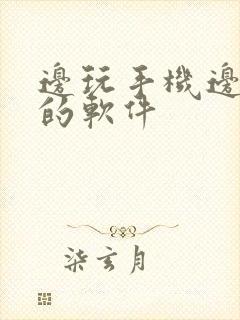 邊玩手機邊
的軟件
柒玄月